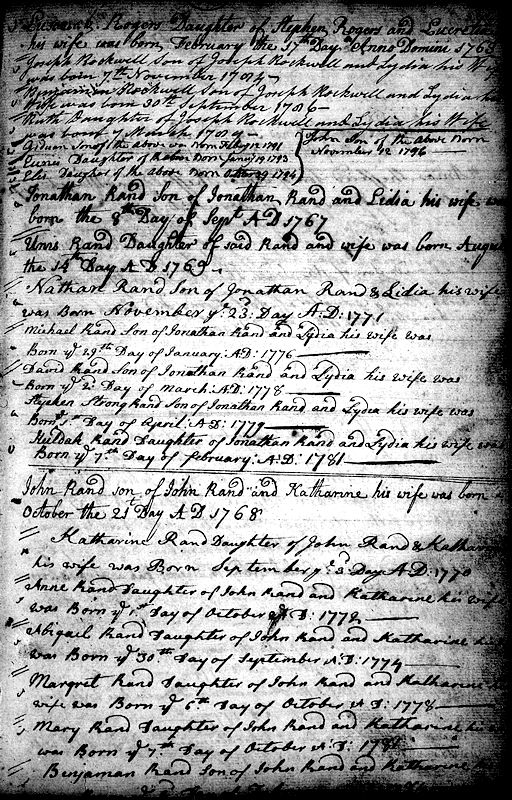 Rogers Daughter of Stephen Rogers and Lucretia
his wife was born February the 17th Day Anno Domini 176
Joseph Rockwell Son of Joseph Rockwell and Lydia his Wife
was born 7th November 1784
Benjamin Rockwell Son of Joseph Rockwell and Lydia his
Wife was born 30th September 1786
Ruth Daughter of Joseph Rockwell and Lydia his Wife
was born 7 March 1789
Son of the above was Born Feby 12 1791
Eunice Daughter of Born Jany 19 1793
Daughter of the above Born 29 1794
John Son of the above Born
November 12 1796
Jonathan Rand Son of Jonathan Rand and Lidia his wife w
born the 8th Day of Sept A D 1767
Unns Rand Daughter of said Rand and wife was born Augus
the 14th Day A D 1769
Nathan Rand Son of Jonathan Rand & Lidia his wife
was Born November ye 23d Day A:D:1771
Michael Rand Son of Jonathan Rand and Lydia his wife was
Born ye 29th Day of January:A:D:1776
David Rand Son of Jonathan Rand and Lydia his wife was
Born ye 2d Day of March:A:D:1778
Stephen Strong Rand Son of Jonathan Rand and Lydia his wife was
Born ye 1st Day of April:A:D:1779
Huldah Rand Daughter of Jonathan Rand and Lydia his wife was
Born ye 7th Day of February:A:D:1781
John Rand son of John Rand and Katharine his wife was born
October the 21 Day A D 1768
Katharine Rand Daughter of John Rand & Kathar
his wife was Born September ye 3d Day A.D:1770
Anne Rand Daughter of John Rand and Katharine his wife
was Born ye 1st Day of October A:D:1772
Abigail Rand Daughter of John Rand and Katharine his
was Born ye 30th Day of September A:D:1774
Margret Rand Daughter of John Rand and Katharine
wife was Born ye 6th Day of October A:D:1778
Mary Rand Daughter of John Rand and Katharine his
was Born ye 7th Day of October A:D:
Benjaman Rand Son of John Rand and Katharine